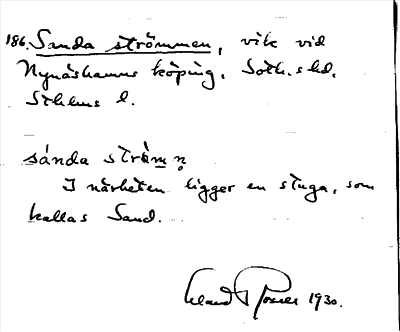 186. Sanda strömmen, vik vid
Nynäshamns köping, Soth. s hd.
Sthlms l.
sánda strömn̥
I närheten ligger en stuga, som
kallas Sand.
1930.